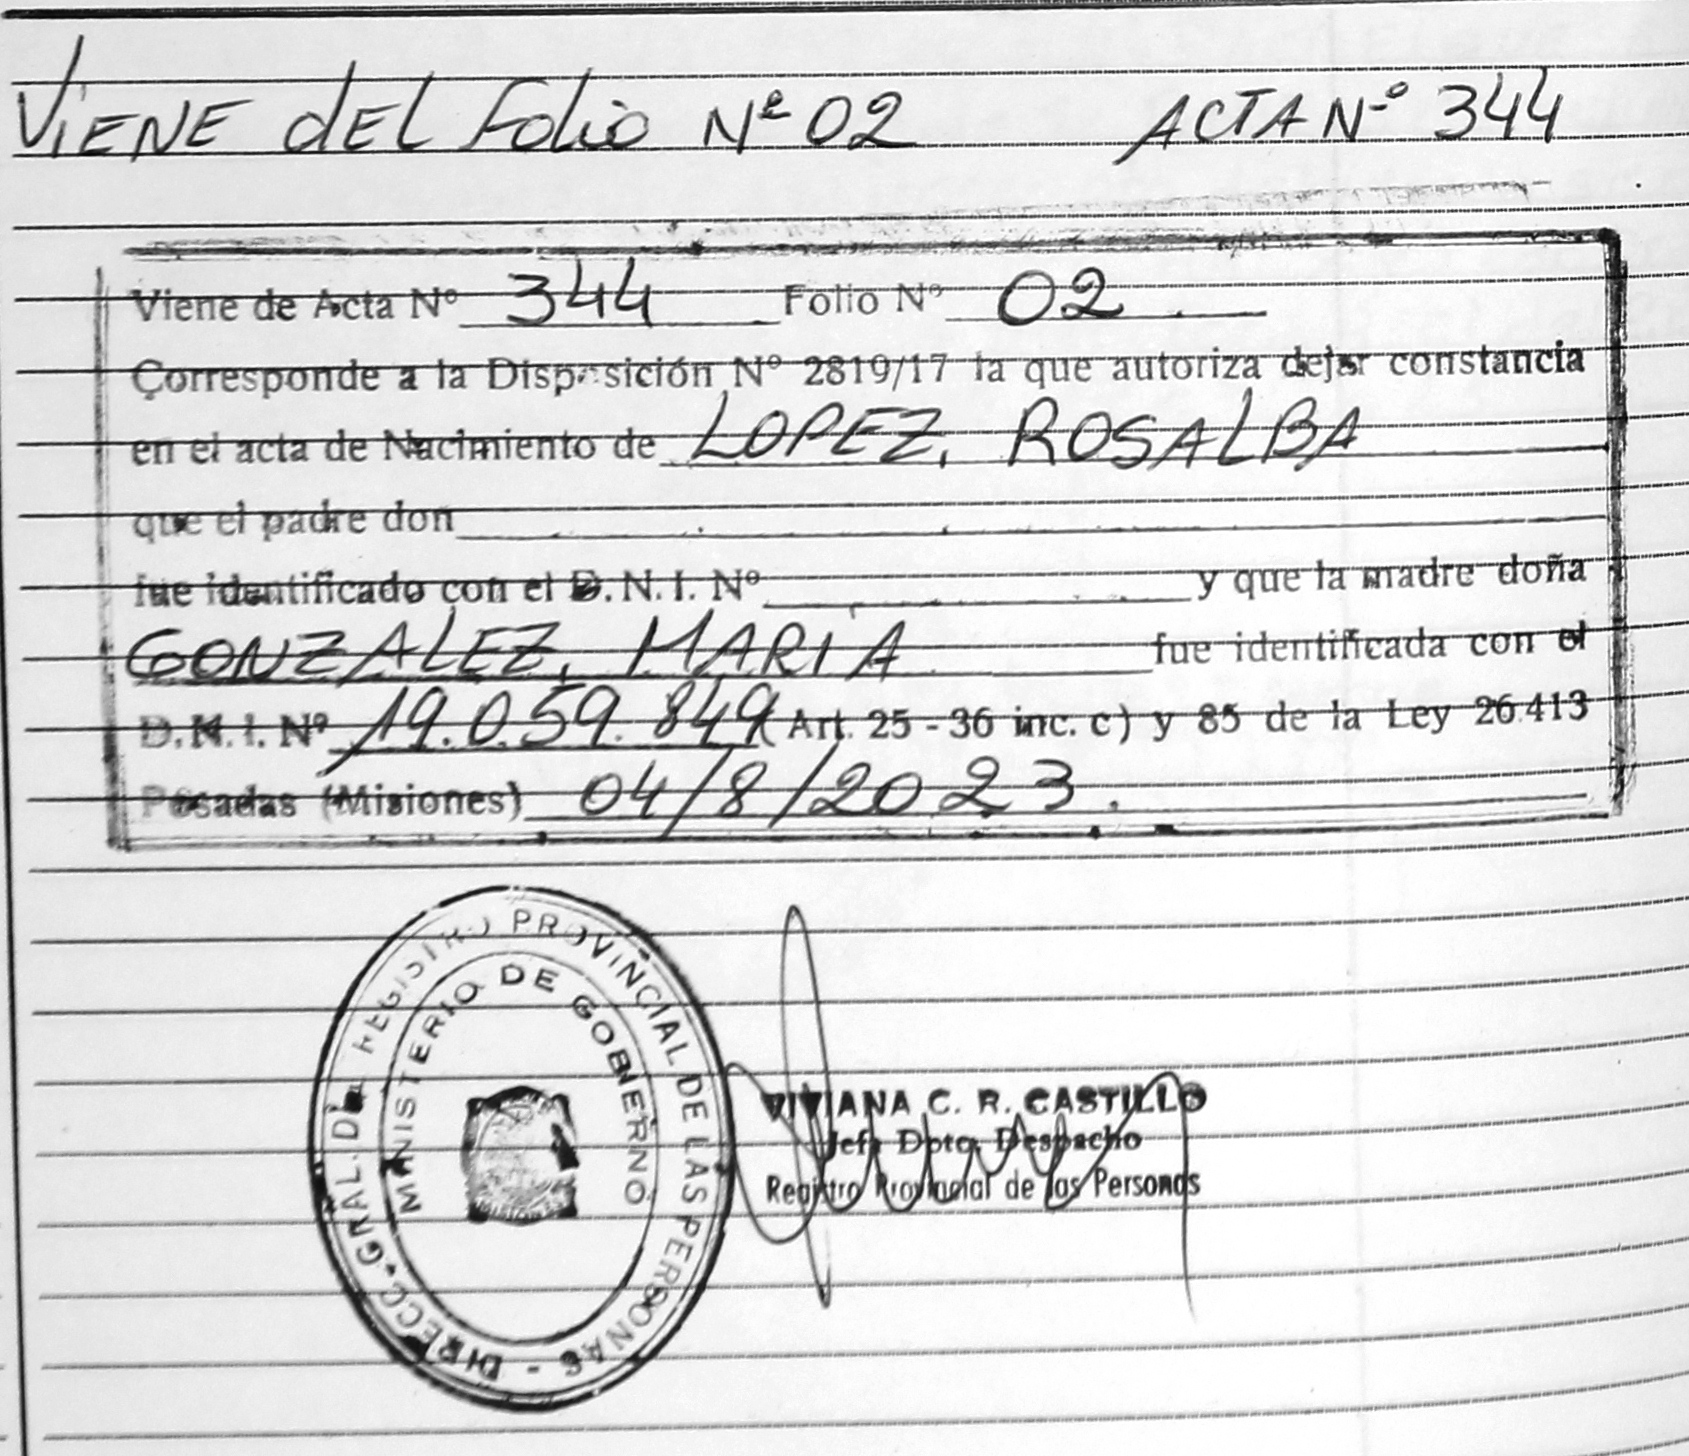 ViENE dEL Folio Nº 02 ACTA Nº 344
Viene de Acta Nº 344 Folio Nº 02
Corresponde a la Disposición Nº 2819/17 la que autoriza dejar constancia
en el acta de Nacimiento de LOPEZ, ROSALBA
que el padre don
fue identificado con el D.N.I. Nº y que la madre doña
GONZALEZ, MARIA fue identificada con el
D.N.I. Nº 19.059.849 (Art. 25 - 36 inc. c) y 85 de la Ley 26.413
Posadas (Misiones) 04/8/2023.
DIRECC. GRAL. DEL REGISTRO PROVINCIAL DE LAS PERSONAS -
MINISTERIO DE GOBIERNO
VIVIANA C. R. CASTILLO
Jefa Dpto. Despacho
Registro Provincial de las Personas